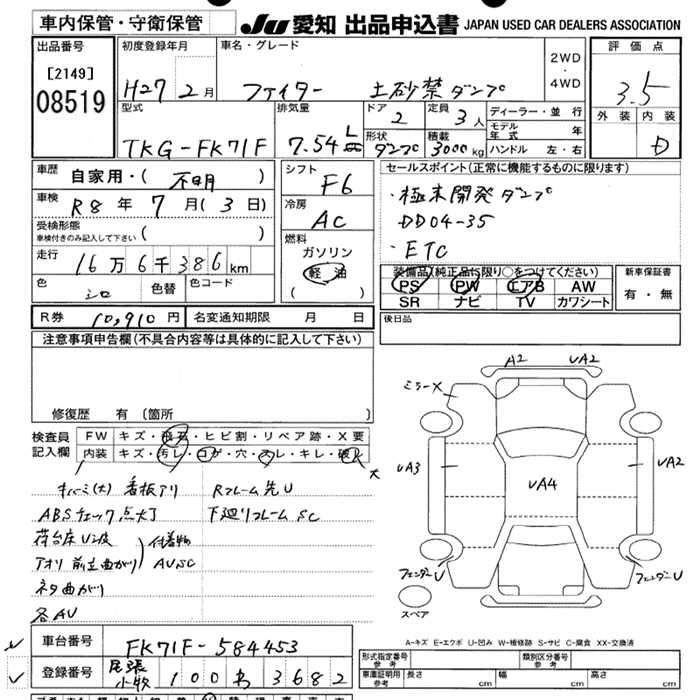 車内保管・守衛保管
JU 愛知 出品申込書 JAPAN USED CAR DEALERS ASSOCIATION
出品番号
[2149]
08519
初度登録年月
H27 2月
車名・グレード
ファイター 土砂禁ダンプ
2WD
・
4WD
評価点
3.5
外装 内装
D
型式
TKG-FK71F
排気量
7.54 L
ドア
2
形状
ダンプ
定員
3人
積載
3000kg
ディーラー・並行
モデル年式 年
ハンドル 左・右
車歴
自家用・( 不明 )
車検
R8年 7月( 3日)
受検形態
車検付きのみ記入して下さい ( )
走行
16万6千386km
色
シロ
色替
色コード
シフト
F6
冷房
AC
燃料
ガソリン
軽油
( )
セールスポイント(正常に機能するものに限ります)
・極東開発ダンプ
DD04-35
・ETC
装備品(純正品に限り○をつけてください)
PS PW エアB AW
SR ナビ TV カワシート
新車保証書
有・無
R券 10,910円 名変通知期限 月 日
後日品
注意事項申告欄(不具合内容等は具体的に記入して下さい)
修復歴 有(箇所 )
検査員記入欄
FW キズ・飛石・ヒビ割・リペア跡・X要
内装 キズ・汚レ・コゲ・穴・スレ・キレ・破レ 大
キバミ(大) 看板アリ Rフレーム先U
ABSチェック点灯 下廻りフレームSC
荷台床U、波
アオリ 前立曲がり 付着物
AUSC
ネタ曲がり
各AU
A2 UA2
ミラーX
UA3 UA4 UA2
フェンダーU フェンダーU
スペア
A-キズ E-エクボ U-凹み W-補修跡 S-サビ C-腐食 XX-交換済
車台番号 FK71F-584453
登録番号 尾張小牧 100 あ 3682
形式指定番号
参考
類別区分番号
参考
車庫証明用
参考
長さ cm 幅 cm 高さ cm